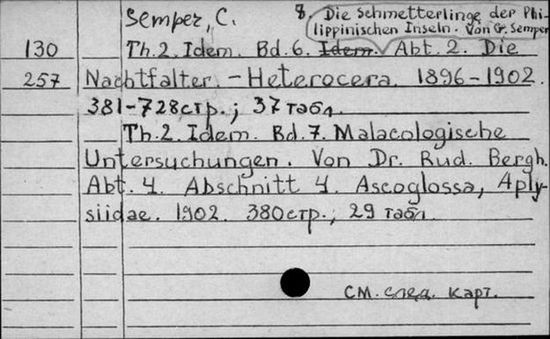 Semper, C. 8. Die Schmetterlinge der Phi-
lippinischen Inseln. Von G. Semper
130 Th. 2. Idem. Bd. 6. Idem. Abt. 2. Die
257 Nachtfalter - Heterocera. 1896-1902.
381-728 стр.; 37 табл.
Th. 2. Idem. Bd. 7. Malacologische
Untersuchungen. Von Dr. Rud. Bergh.
Abt. 4. Abschnitt 4. Ascoglossa, Aply-
siidae. 1902. 380 стр.; 29 табл.
см. след. карт.